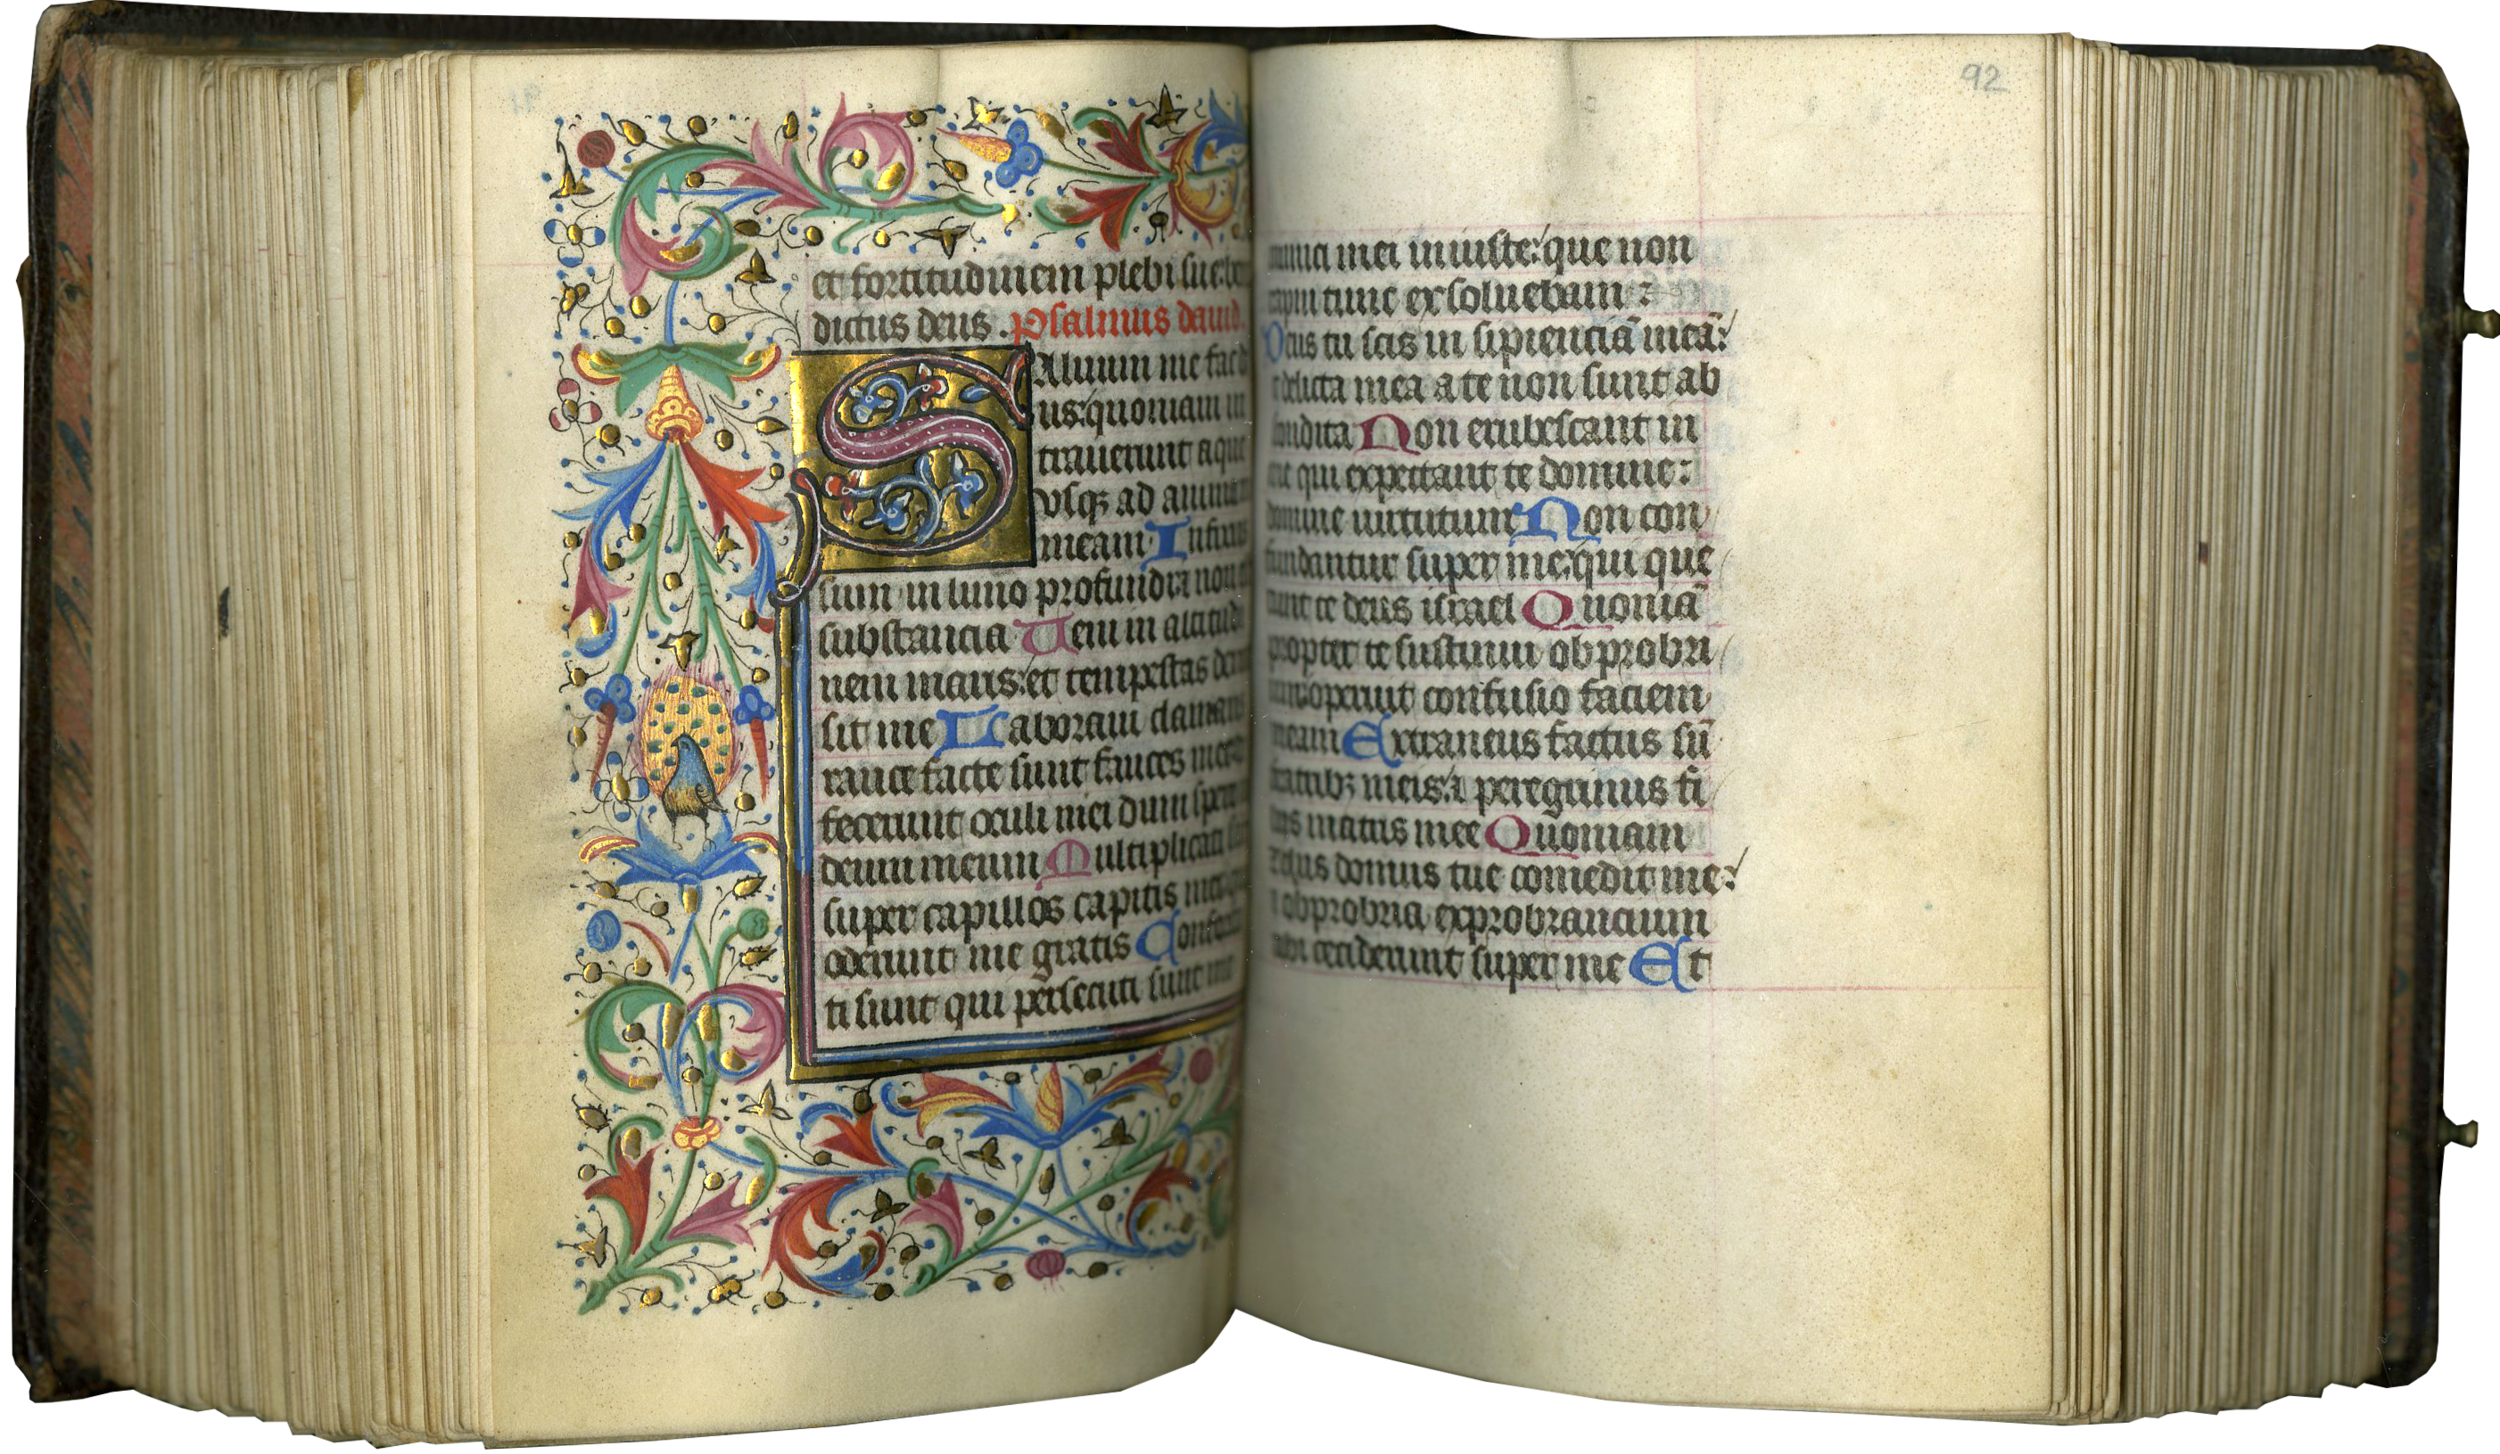 et fortitudinem plebi sue: be
dictus deus. Psalmus dauid.
Saluum me fac d
us: quoniam in
trauerunt aque
usqꝫ ad
meam Infixus
sum in limo profundi: ⁊ non
substancia Veni in altitudi
nem maris: et tempestas
sit me Laboraui clamans
rauce facte sunt fauces mee:
fecerunt oculi mei dum spero
deum meum Multiplicati
super capillos capitis mei
oderunt me gratis Conforta
ti sunt qui persecuti sunt me
92
inimici mei iniuste: que non
rapui tunc exsoluebam:
Deus tu scis in sipienciā meā:
⁊ delicta mea a te non sunt ab
scondita Non erubescant in
me qui expectant te domine:
domine uirtutum Non con
fundantur super me: qui que
runt te deus israel Quoniā
propter te sustinui obprobri
um: operuit confusio faciem
meam Extraneus factus sū
fratribꝫ meis: ⁊ peregrinus fi
liis matris mee Quoniam
zelus domus tue comedit me:
⁊ obprobria exprobrancium
tibi ceciderunt super me Et